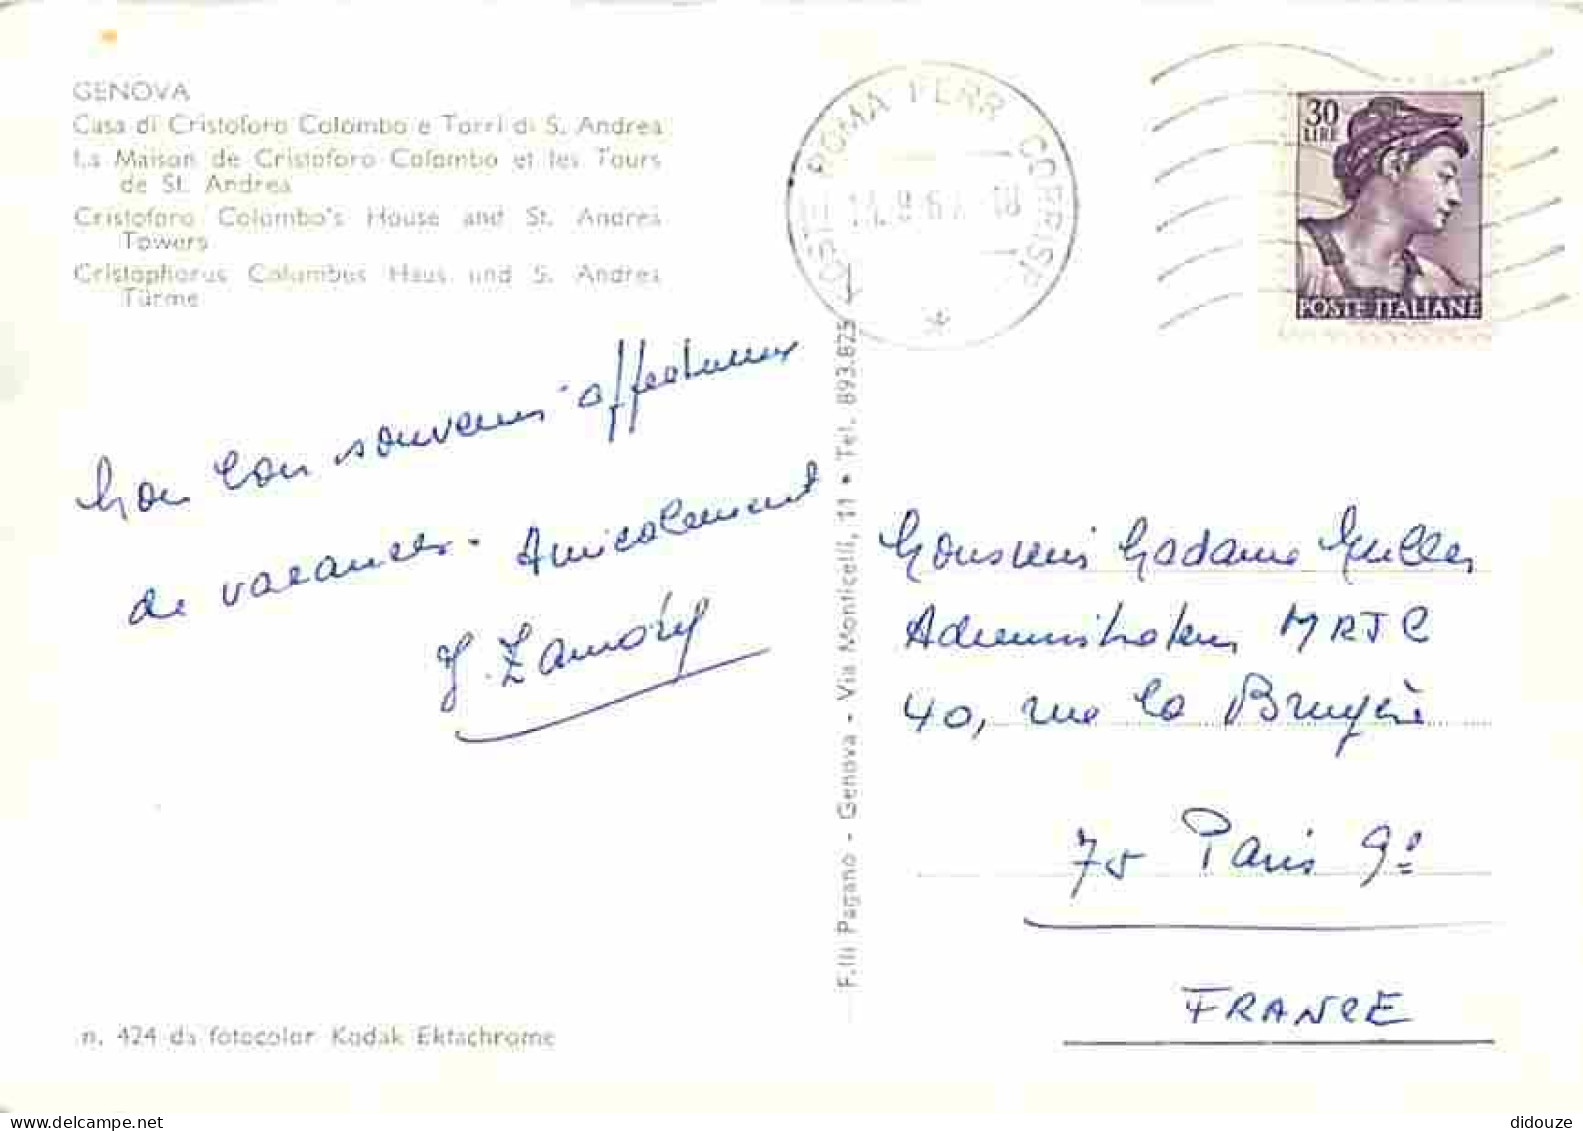 GENOVA
Casa di Cristoforo Colombo e Torri di S. Andrea
La Maison de Cristoforo Colombo et les Tours
de St. Andrea
Cristoforo Colombo's House and St. Andrea
Towers
Cristophorus Columbus Haus und S. Andrea
Türme
POSTE ROMA FERR CORRISP
30
LIRE
POSTE ITALIANE
Mon bon souvenir affectueux
de vacances. Amicalement
J. Zamory
F.lli Pagano - Genova - Via Monticelli, 11 • Tel. 893.825
Monsieur Madame Muller
Administrateur MRJC
40, rue la Bruyère
75 Paris 9e
FRANCE
n. 424 da fotocolor Kodak Ektachrome
didouze